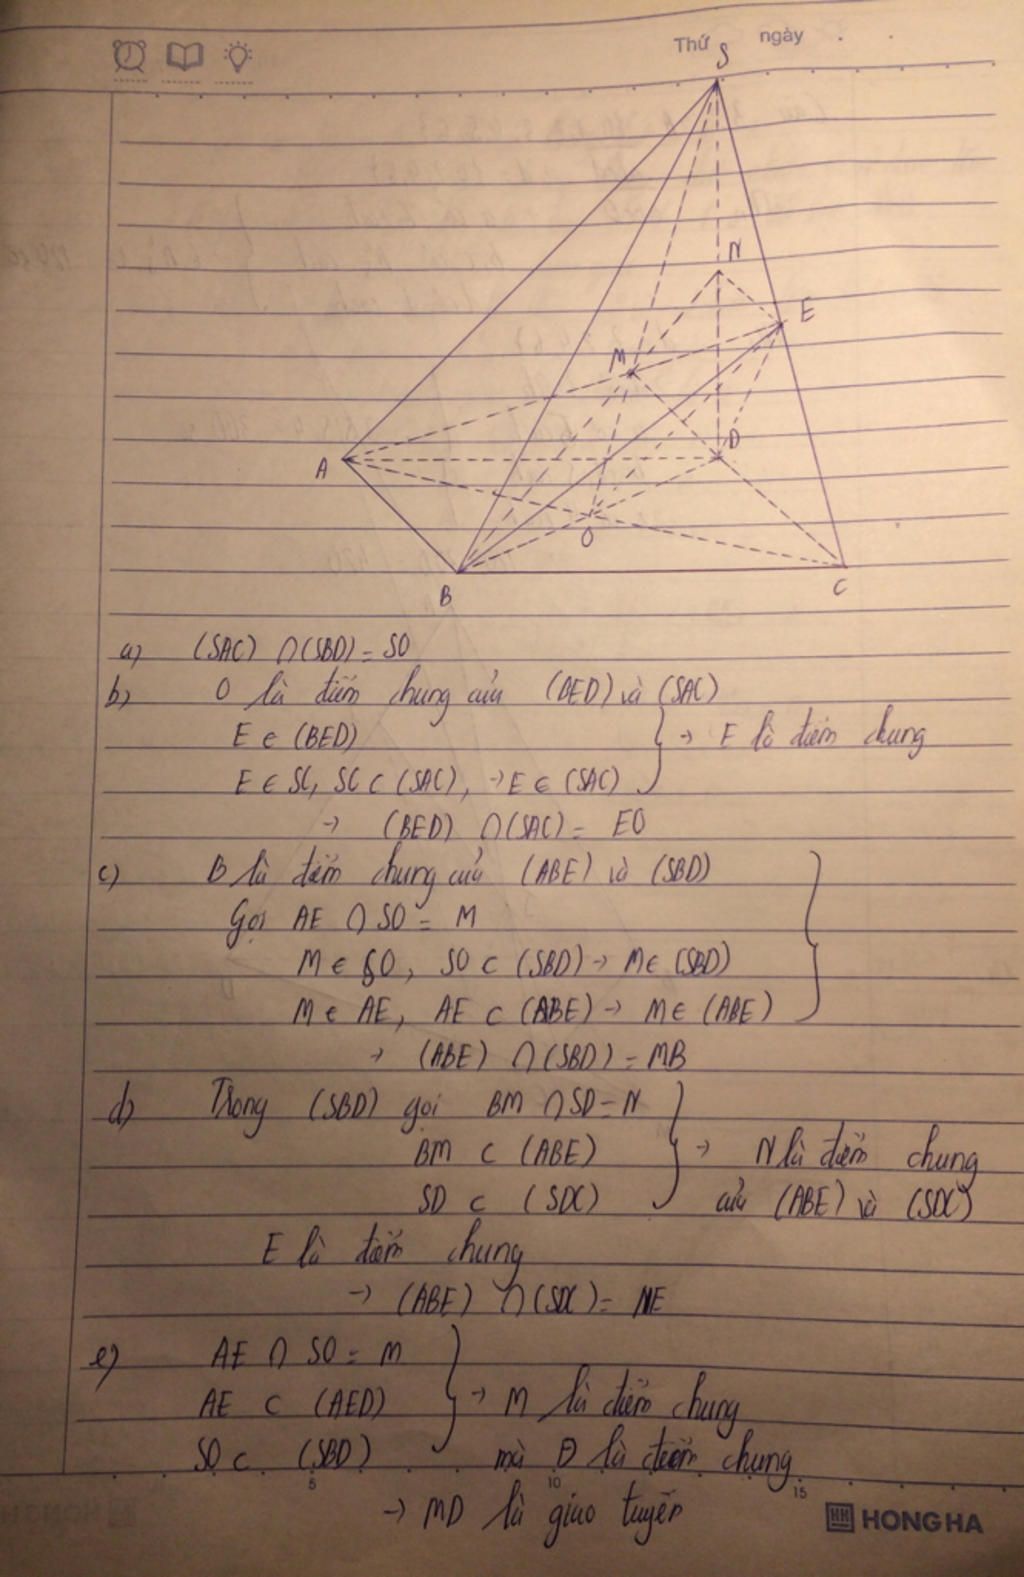 Thứ ngày
S
N
E
M
A
D
O
B
C
a) (SAC) ∩ (SBD) = SO
b) O là điểm chung của (BED) và (SAC)
E ∈ (BED)
E ∈ SC, SC ⊂ (SAC), → E ∈ (SAC) } → E là điểm chung
→ (BED) ∩ (SAC) = EO
c) B là điểm chung của (ABE) và (SBD)
Gọi AE ∩ SO = M
M ∈ SO, SO ⊂ (SBD) → M ∈ (SBD)
M ∈ AE, AE ⊂ (ABE) → M ∈ (ABE) }
→ (ABE) ∩ (SBD) = MB
d) Trong (SBD) gọi BM ∩ SD = N
BM ⊂ (ABE) } → N là điểm chung
SD ⊂ (SDC) của (ABE) và (SDC)
E là điểm chung
→ (ABE) ∩ (SDC) = NE
e) AE ∩ SO = M
AE ⊂ (AED) } → M là điểm chung
SO ⊂ (SBD) mà D là điểm chung
→ MD là giao tuyến
5 10 15
HH HONG HA